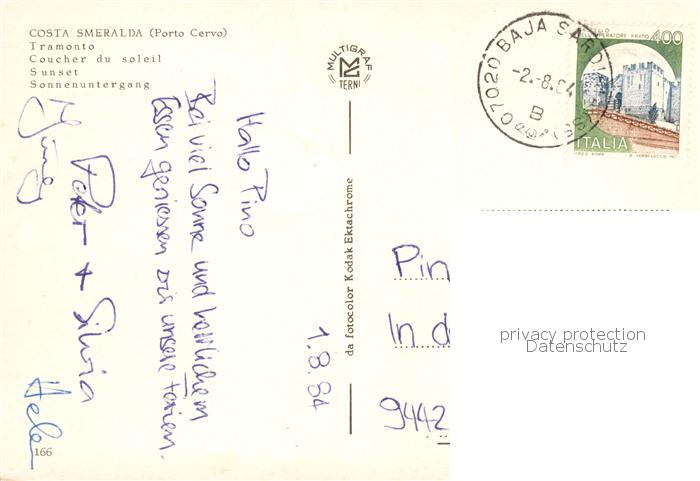 COSTA SMERALDA (Porto Cervo)
Tramonto
Coucher du soleil
Sunset
Sonnenuntergang
MULTIGRAF
TERNI
07020 BAJA SARDI
-2.-8.84
B
(SS)
400
ITALIA
Hallo Pino
Bei viel Sonne und herrlichem
Essen geniessen wir unsere Ferien.
Peter + Silvia
1.8.84
da fotocolor Kodak Ektachrome
Pin
In d
9442
privacy protection
Datenschutz
166